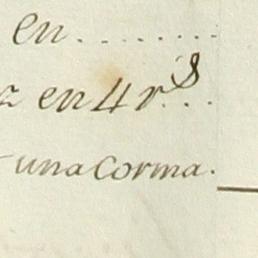 en........
z en 4 r.s...
una Corma.